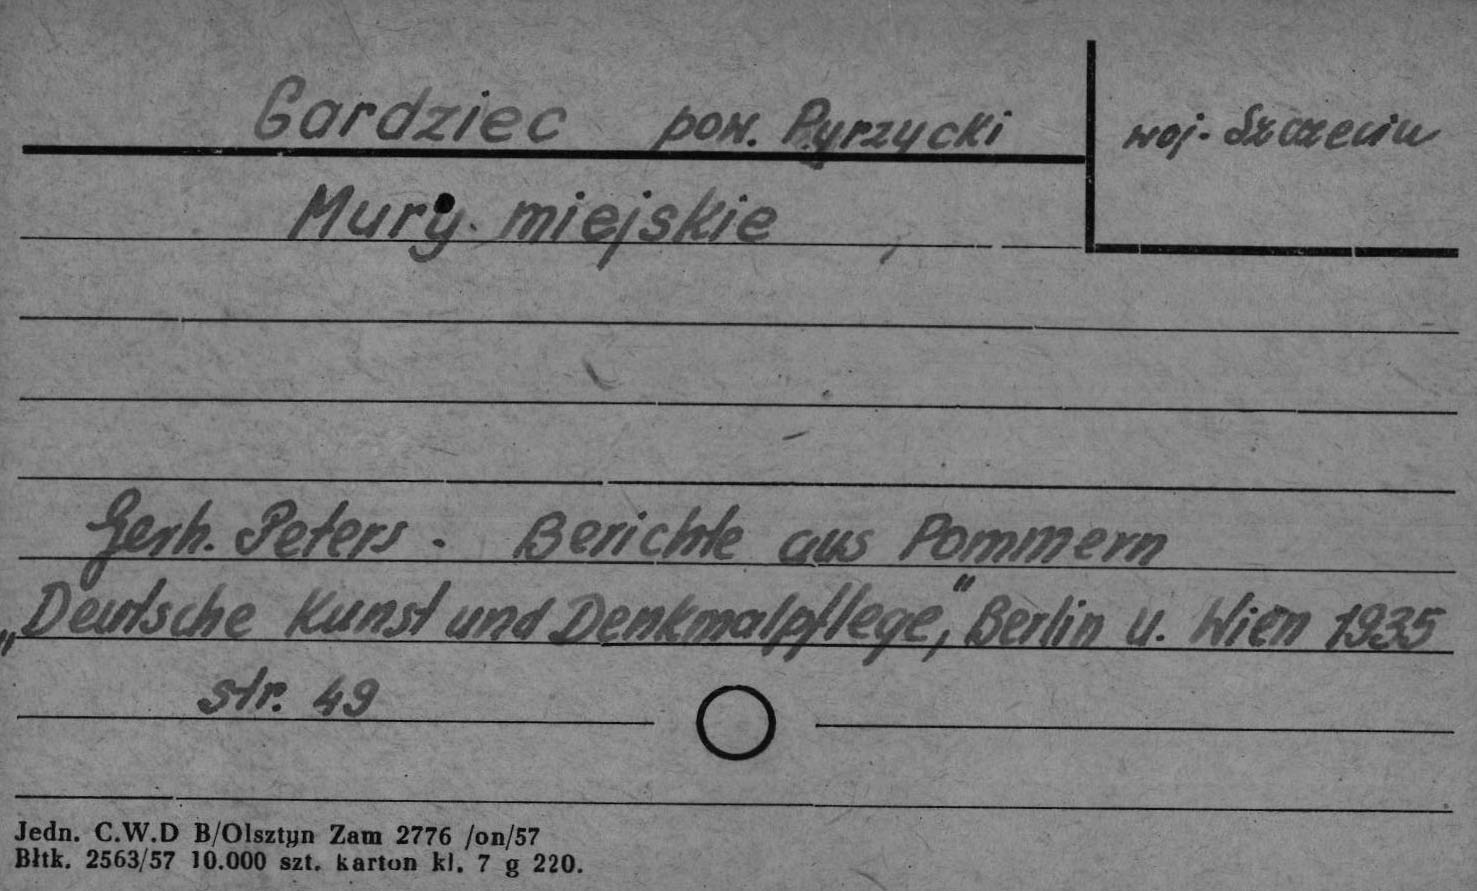 Gardziec pow. Pyrzycki woj. Szczecin
Mury miejskie
Gerh. Peters. Berichte aus Pommern
„Deutsche Kunst und Denkmalpflege", Berlin u. Wien 1935
str. 49
Jedn. C.W.D B/Olsztyn Zam 2776 /on/57
Błtk. 2563/57 10.000 szt. karton kl. 7 g 220.